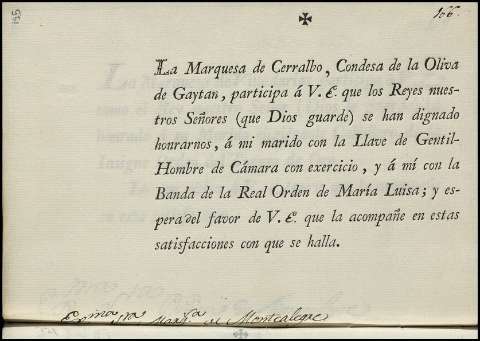 155
166.
La Marquesa de Cerralbo, Condesa de la Oliva
de Gaytan, participa á V. E.ª que los Reyes nues-
tros Señores (que Dios guarde) se han dignado
honrarnos, á mi marido con la Llave de Gentil-
Hombre de Cámara con exercicio, y á mí con la
Banda de la Real Orden de María Luisa; y es-
pera del favor de V. E.ª que la acompañe en estas
satisfacciones con que se halla.
Exma Sra Marqsa de Montealegre